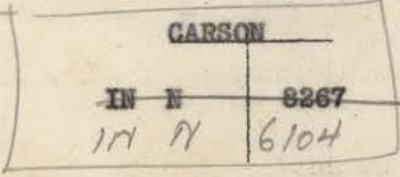 CARSON
IN N 8267
IN N 6104